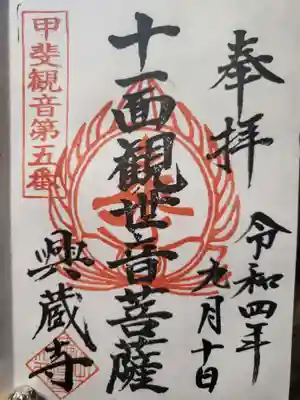 奉拝
令和四年
九月十日
十一面観世音菩薩
甲斐観音第五番
興蔵寺